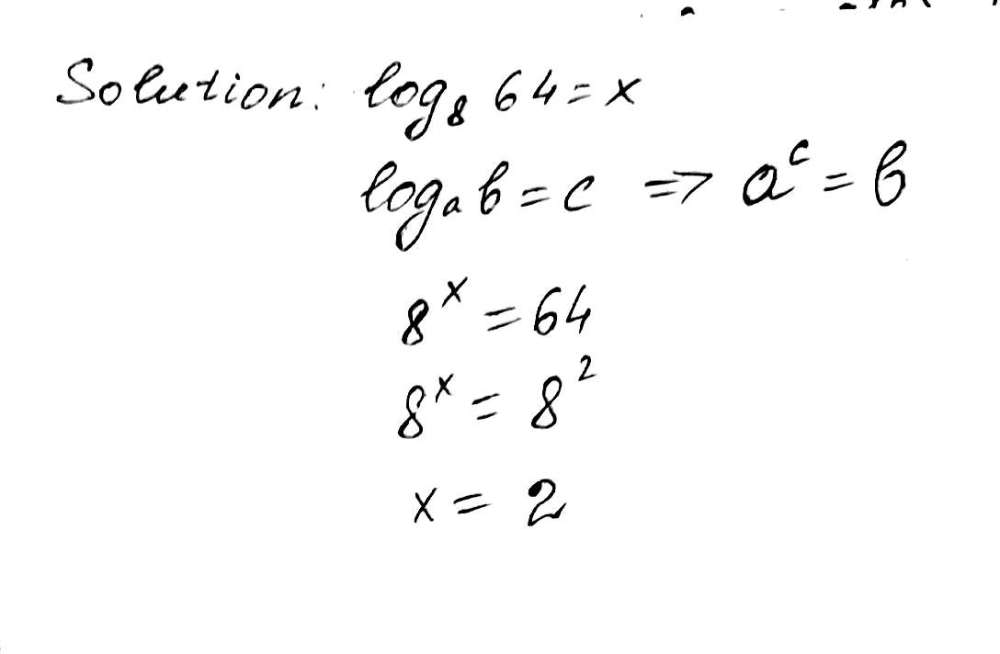 Solution: log₈ 64 = x
logₐ b = c => aᶜ = b
8ˣ = 64
8ˣ = 8²
x = 2